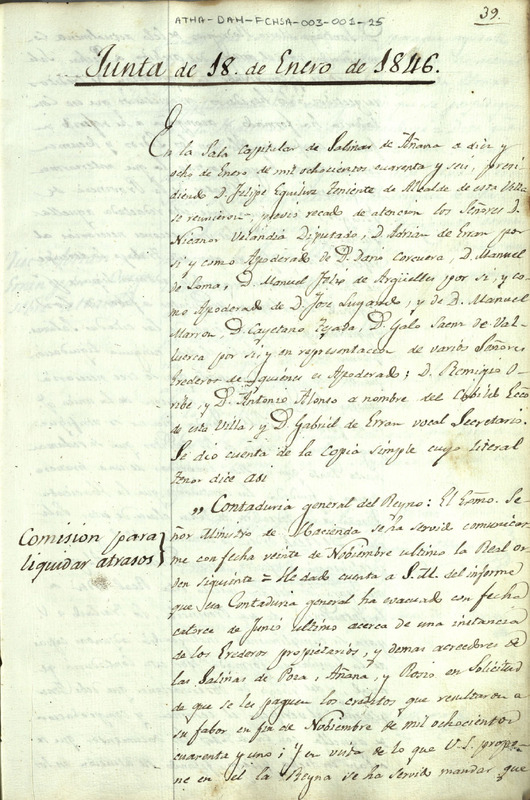 ATHA-DAH-FCHSA-003-001-25
39.
Junta de 18. de Enero de 1846.
En la Sala Capitular de Salinas de Añana a diez y
ocho de Enero de mil ochocientos cuarenta y seis, presi-
diendo D. Felipe Eguiluz Teniente de Alcalde de esta Villa
se reunieron, previo recado de atencion los Señores D.
Nicanor Velandia Diputado, D. Adrian de Erran por
si y como Apoderado de D. Dario Corcuera, D. Manuel
de Loma, D. Manuel Felix de Argüelles por si, y co-
mo Apoderado de D. Jose Lugando, y de D. Manuel
Marron, D. Cayetano Tejada, D. Galo Saenz de Val-
luerca por si, y en representacion de varios Señores
Erederos de quienes es Apoderado; D. Remigio O-
ribe, y D. Antonio Alonso a nombre del Cabildo Ecco
de esta Villa, y D. Gabriel de Erran vocal Secretario.
Se dio cuenta de la Copia simple cuyo literal
tenor dice asi
„ Contaduria general del Reyno: El Esmo. Se-
Comision para
liquidar atrasos}
ñor Ministro de Hacienda se ha servido comunicar-
me con fecha veinte de Noviembre ultimo la Real or-
den siguiente = He dado cuenta a S.M. del informe
que esa Contaduria general ha evacuado con fecha
catorce de Junio ultimo acerca de una instancia
de los Erederos propietarios, y demas acreedores de
las Salinas de Poza, Añana, y Rosio en Solicitud
de que se les paguen los creditos que resultaron a
su fabor en fin de Noviembre de mil ochocientos
cuarenta y uno; Y en vista de lo que V.S. propo-
ne en el la Reyna se ha servido mandar que